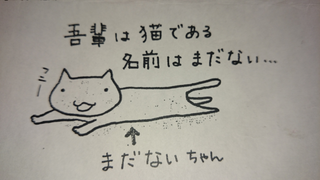 吾輩は猫である
名前はまだない…
フニー
まだないちゃん